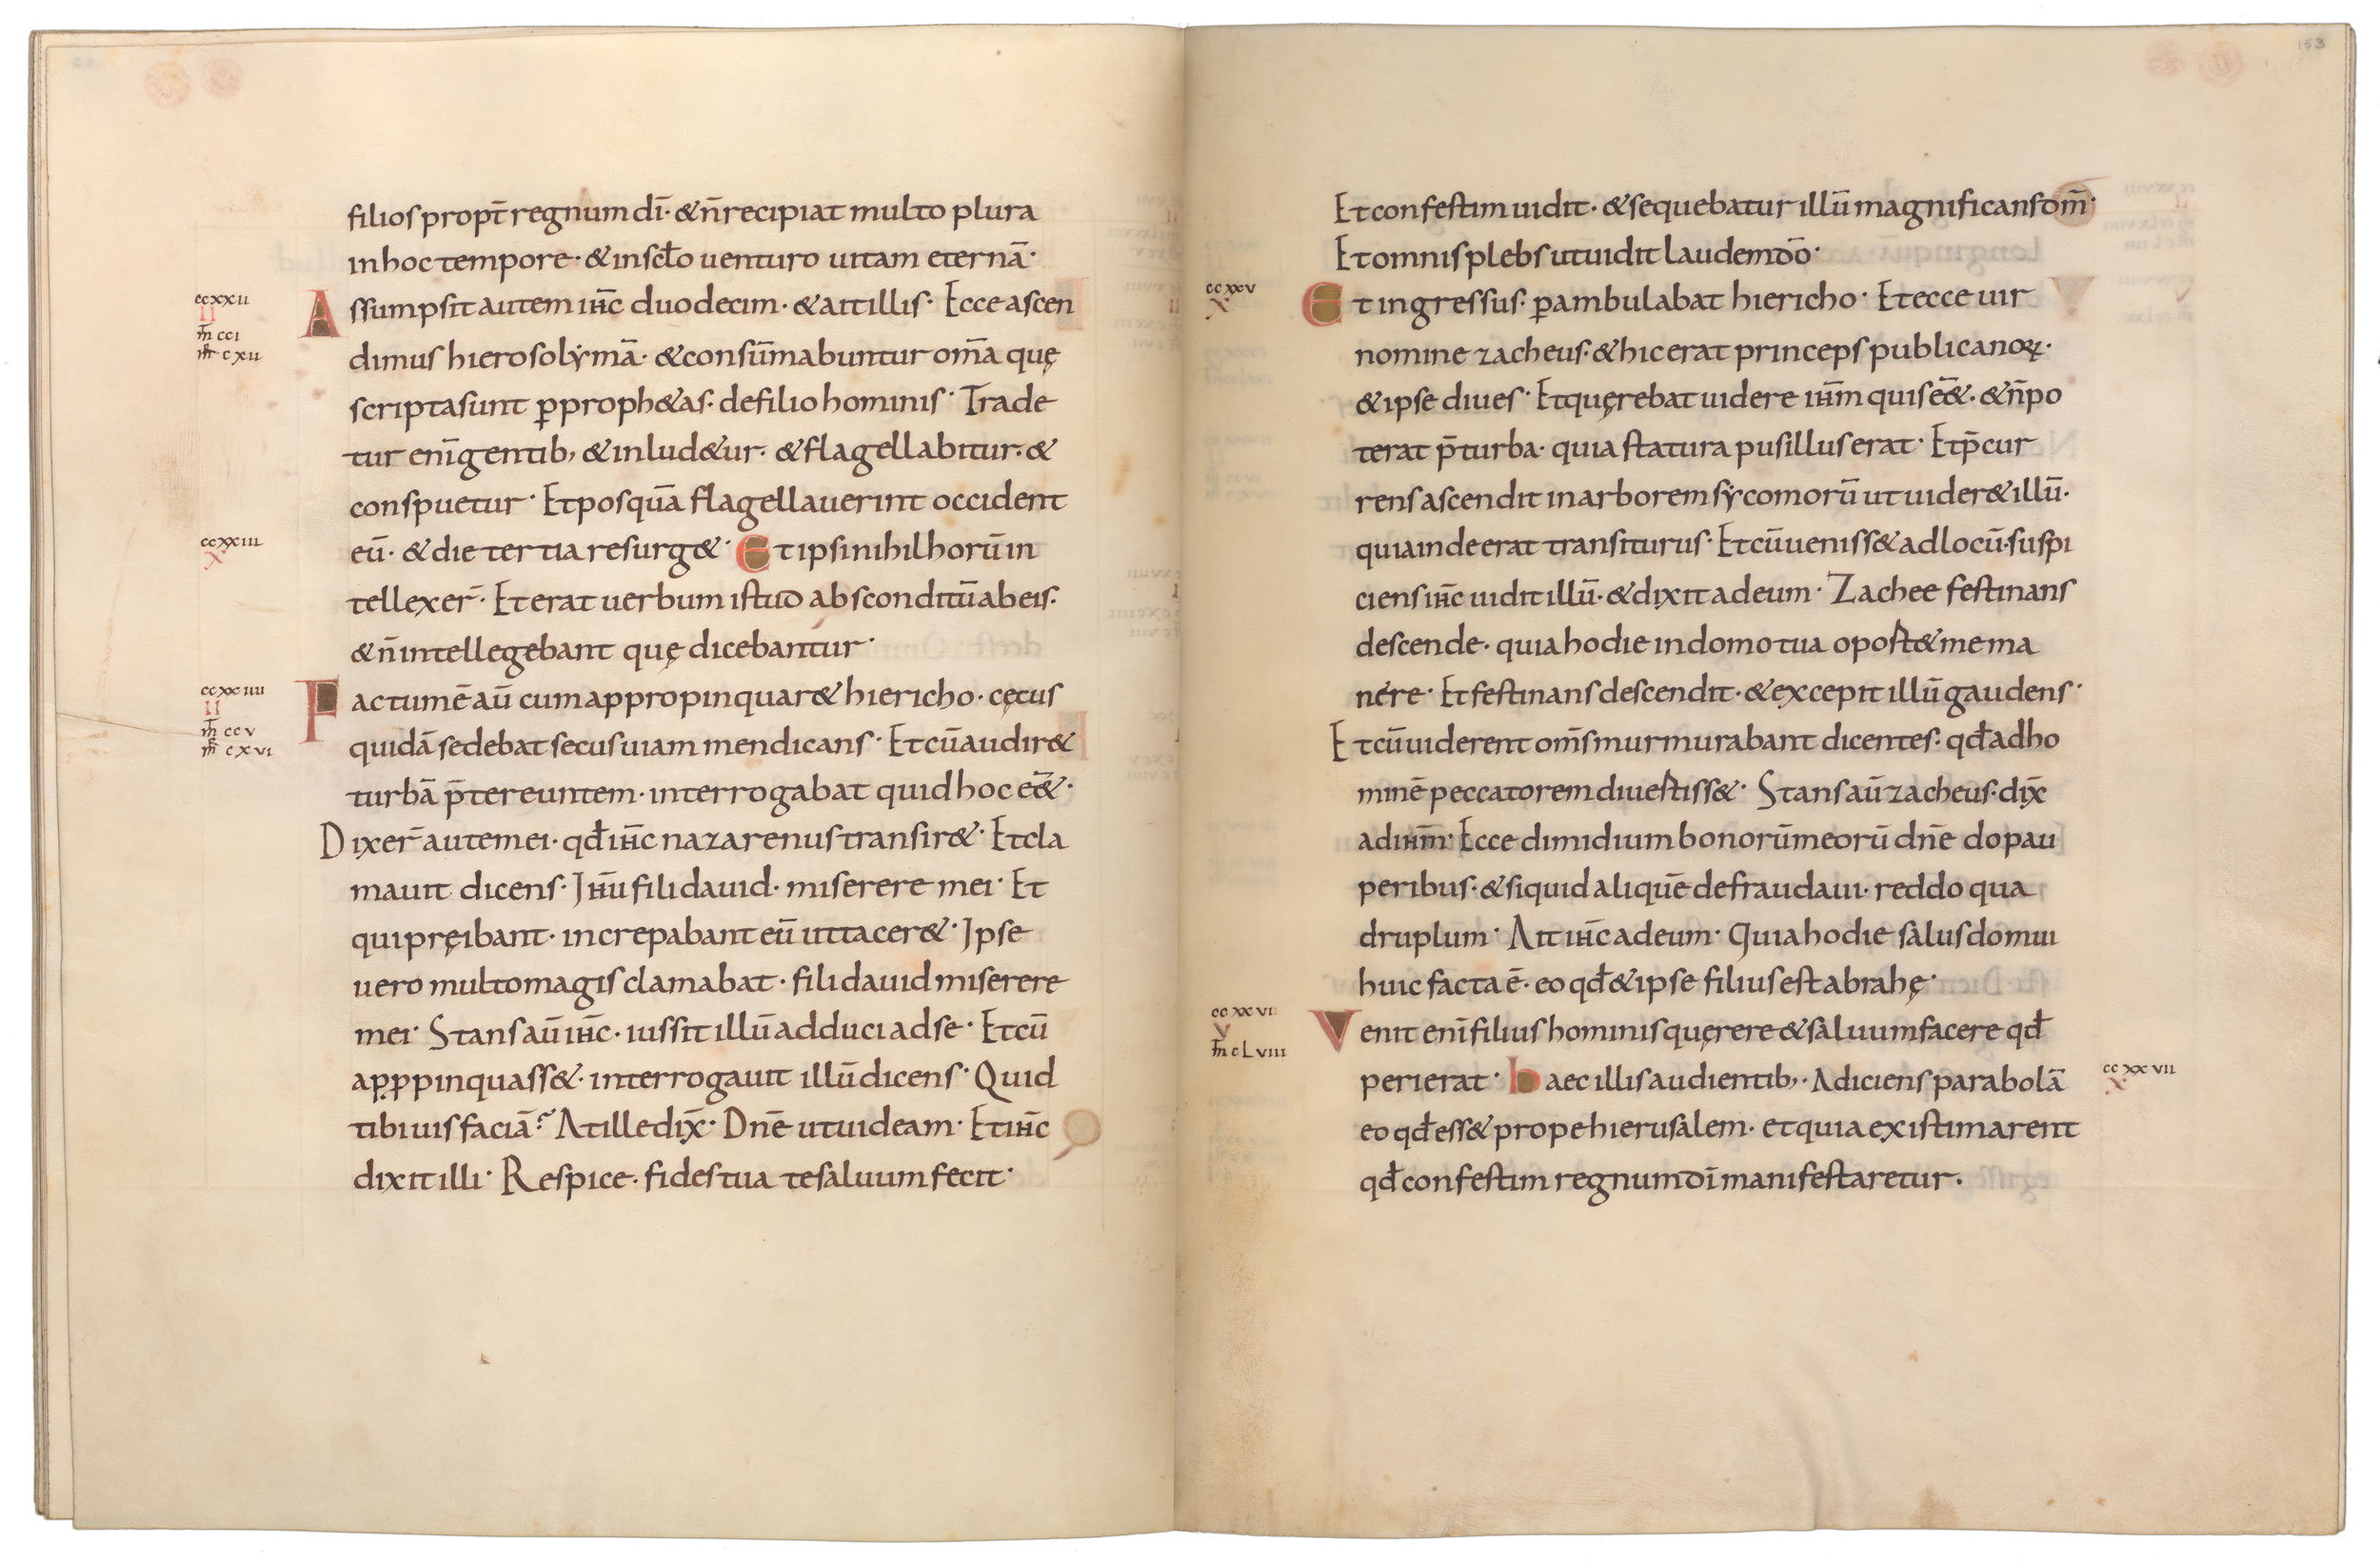 filios propt̄ regnum dī· & n̄ recipiat multo plura
in hoc tempore· & in scƚo uenturo uitam eternā·
ccxxii
ii
m̄ cci
mr̄ cxii
Assumpsit autem ihc̄ duodecim· & ait illis· Ecce ascen
dimus hierosolẏmā· & consūmabuntur om̄a quę
scripta sunt ꝑ proph&as· de filio hominis· Trade
tur enī gentib; & inlud&ur· & flagellabitur· &
conspuetur· Et posquā flagellauerint occident
ccxxiii
x
eū· & die tertia resurg&· Et ipsi nihil horū in
tellexer̄· Et erat uerbum istud absconditū ab eis·
& n̄ intellegebant quę dicebantur·
ccxxiiii
ii
m̄ ccv
mr̄ cxvi
Factum ē aū cum appropinquar& hiericho· cęcus
quidā sedebat secus uiam mendicans· Et cū audir&
turbā p̄tereuntem· interrogabat quid hoc eē&·
Dixer̄ autem ei· qđ ihc̄ nazarenus transir&· Et cla
mauit dicens· Ihū fili dauid· miserere mei· Et
qui pręibant· increpabant eū ut tacer&· Ipse
uero multo magis clamabat· fili dauid miserere
mei· Stans aū ihc̄· iussit illū adduci ad se· Et cū
apꝓpinquass&· interrogauit illū dicens· Quid
tibi uis faciā? At ille dix̄· Dnē ut uideam· Et ihc̄
dixit illi· Respice· fides tua te saluum fecit·
153
Et confestim uidit· & sequebatur illū magnificans dm̄·
Et omnis plebs ut uidit laudem dō·
ccxxv
x
Et ingressus· ꝑambulabat hiericho· Et ecce uir
nomine zacheus· & hic erat princeps publicanoꝝ·
& ipse diues· Et quęrebat uidere ihm̄ quis eē&· & n̄ po
terat p̄ turba· quia statura pusillus erat· Et p̄cur
rens ascendit in arborem sẏcomorū ut uider& illū·
quia inde erat transiturus· Et cū ueniss& ad locū· suspi
ciens ihc̄ uidit illū· & dixit ad eum· Zachee festinans
descende· quia hodie in domo tua oport& me ma
nére· Et festinans descendit· & excepit illū gaudens·
Et cū uiderent om̄s murmurabant dicentes· qđ ad ho
minē peccatorem diuertiss&· Stans aū zacheus· dix̄
ad ihm̄· Ecce dimidium bonorū meorū dnē do pau
peribus· & si quid aliquē defraudaui· reddo qua
druplum· Ait ihc̄ ad eum· Quia hodie salus domui
huic facta ē· eo qđ & ipse filius est abrahę·
ccxxvi
v
m̄ clviii
Venit enī filius hominis quęrere & saluum facere qđ
perierat· haec illis audientib;· Adiciens parabolā
ccxxvii
x
eo qđ ess& prope hierusalem· et quia existimarent
qđ confestim regnum dī manifestaretur·